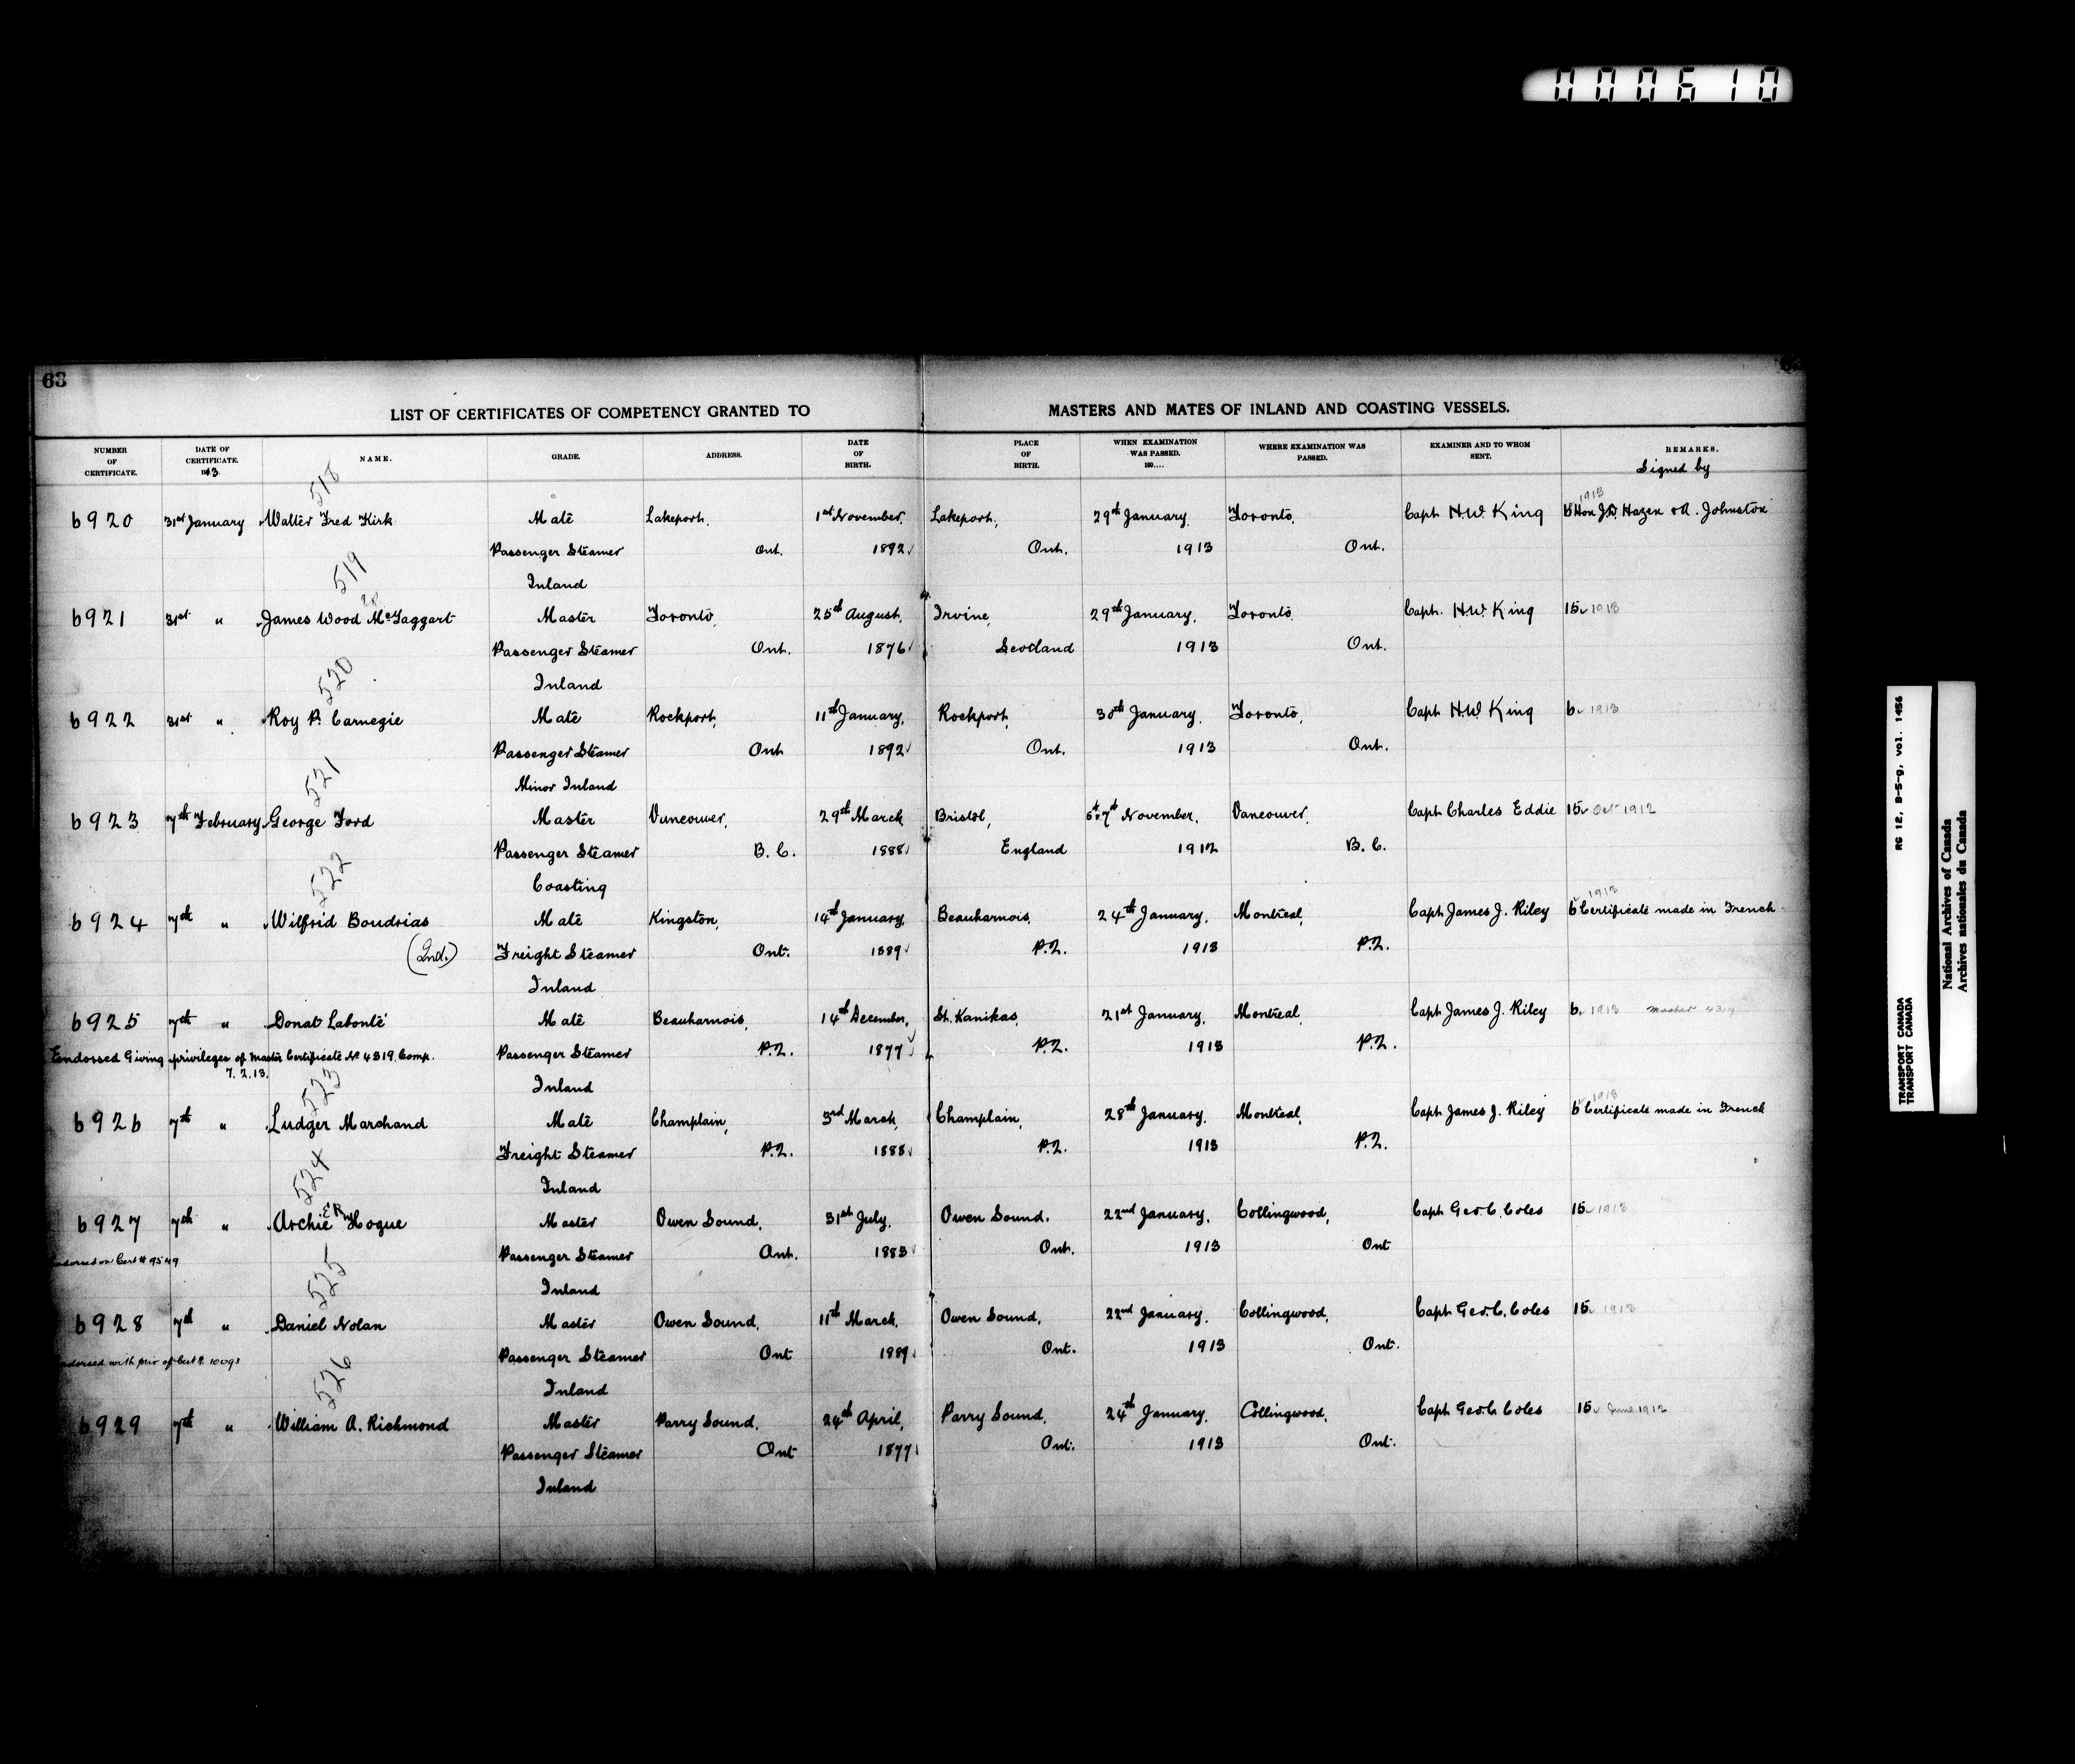 000610
63
LIST OF CERTIFICATES OF COMPETENCY GRANTED TO MASTERS AND MATES OF INLAND AND COASTING VESSELS.
NUMBER OF CERTIFICATE. DATE OF CERTIFICATE. 1913. NAME. GRADE. ADDRESS. DATE OF BIRTH. PLACE OF BIRTH. WHEN EXAMINATION WAS PASSED. 190.... WHERE EXAMINATION WAS PASSED. EXAMINER AND TO WHOM SENT. REMARKS.
Signed by
518
1913
6920 31st January Walter Fred Kirk Mate Lakeport, 1st November, Lakeport, 29th January, Toronto, Capt H.W. King 6 Hon J.D. Hazen & A. Johnston
Passenger Steamer Ont. 1892 Ont. 1913 Ont.
Inland
519
6921 31st " James Wood McTaggart Master Toronto, 25th August, Irvine, 29th January, Toronto, Capt. H.W. King 15 1913
Passenger Steamer Ont. 1876 Scotland 1913 Ont.
Inland
520
6922 31st " Roy P. Carnegie Mate Rockport, 11th January, Rockport, 30th January, Toronto, Capt H.W. King 6 1913
Passenger Steamer Ont 1892 Ont. 1913 Ont.
Minor Inland
521
6923 7th February George Ford Master Vancouver, 29th March Bristol, 6th & 7th November, Vancouver, Capt Charles Eddie 15 Oct 1912
Passenger Steamer B. C. 1888 England 1912 B. C.
Coasting
522
1913
6924 7th " Wilfrid Boudrias Mate Kingston, 14th January, Beauharnois, 24th January, Montreal, Capt James J. Riley 6 Certificate made in French
(2nd.) Freight Steamer Ont. 1889 P.Q. 1913 P.Q.
Inland
6925 7th " Donat Labonté Mate Beauharnois, 14th December, St. Kanikas, 21st January, Montreal, Capt James J. Riley 6 1913 Master 4319
Endorsed Giving privileges of Master Certificate No 4319 Comp. Passenger Steamer P.Q. 1877 P.Q. 1913 P.Q.
7.2.13. Inland
523
1913
6926 7th " Ludger Marchand Mate Champlain, 3rd March, Champlain, 28th January, Montreal, Capt James J. Riley 6 Certificate made in French
Freight Steamer P.Q. 1888 P.Q. 1913 P.Q.
Inland
524
6927 7th " Archie E R Hogue Master Owen Sound, 31st July, Owen Sound, 22nd January, Collingwood, Capt Geo. C. Coles 15 1913
Endorsed on Cert # 9549 Passenger Steamer Ont. 1883 Ont. 1913 Ont
Inland
525
6928 7th " Daniel Nolan Master Owen Sound, 11th March, Owen Sound, 22nd January, Collingwood, Capt Geo. C. Coles 15 1913
Endorsed with priv of Cert # 10093 Passenger Steamer Ont 1889 Ont. 1913 Ont.
Inland
526
6929 7th " William A. Richmond Master Parry Sound, 24th April, Parry Sound, 24th January, Collingwood, Capt Geo. C. Coles 15 June 1912
Passenger Steamer Ont 1877 Ont. 1913 Ont.
Inland
RG 12, B-5-g, vol. 1456
TRANSPORT CANADA
TRANSPORT CANADA
National Archives of Canada
Archives nationales du Canada